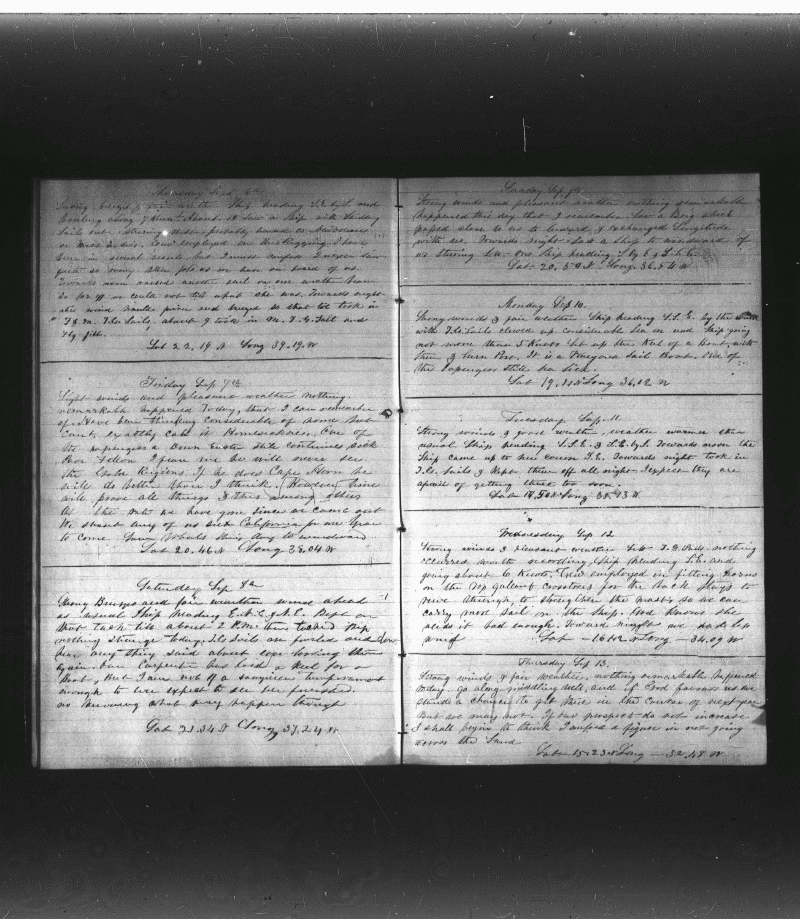 Thursday Sept 6th
Strong breezes & fair weather. Ship heading S.E. by S. and
bowling along 7 knots. About 10 saw a Ship with Studding
Sails out, steering probably bound to
or Crew employed on the Rigging. I have
been in several vessels but I must confess I never saw
quite so many stiff as we have on board of us.
Towards noon raised another sail on our weather beam
So far off we could not tell what she was. Towards night
the wind hauled and breezed so that we took in
F & M. T.Gt. Sails about 9 took in M. T. G. Sail and
Fly Jib.
Lat 22.19 N Long 39.19 W
Friday Sep 7th
Light winds and pleasant weather nothing
remarkable happened Today, that I can remember
of. Have been thinking considerable of home but
can't exactly call it Homesickness. One of
the passengers a Down Easter still continues sick
Poor fellow I fear me he will never see
the Gold Regions. If he does Cape Horn he
will do better than I think. However time
will prove all things & this among others
At the rate we have gone since we came out
We shant any of us see California for one Year
to come.
Lat 20.46 N Long 38.04 W
Saturday Sep 8th
Strong Breezes and fair weather wind ahead
as usual Ship heading Kept on
that tack till about 2 P.M. then tacked Ship
nothing strange today. T.G. Sails are furled and
hear any thing said about ever loosing them
again. Our Carpenter has laid a keel for a
Boat, But I am not of a sanguine temperament
enough to ever expect to see her finished.
no knowing what may happen though
Lat 21.34 N Long 37.24 W
Sunday Sep 9th
Strong winds and pleasant weather nothing remarkable
happened this day that I remember. Saw a Brig which
passed close to us to leeward & exchanged Longitude
with us. Towards night had a ship to windward of
us steering Our Ship heading S. by E. & S.S.E.
Lat 20.50 N Long 36.54 W
Monday Sep 10.
Strong winds & fair weather Ship heading S.S.E. by the wind
with T.G. Sails clewed up considerable sea on and Ship going
not more than 5 Knots. Set up the Keel of a Boat, with
Stem & Stern Post. It is a Sail Boat. One of
the Passengers still sea sick.
Lat 19. Long 36.02 W
Tuesday Sep. 11.
Strong winds & good weather, weather warmer than
usual Ship heading S.S.E. & S.E. by S. Towards noon the
Ship came up to her course S.E. Towards night took in
T.G. Sails & kept them off all night. I expect they are
afraid of getting there too soon.
Lat Long 35.13 W
Wednesday Sep 12
Strong winds & pleasant weather Set T.G. Sails. nothing
occurred worth recording, Ship heading S.E. and
going about 6 Knots. Crew employed in fitting Horns
on the Top gallant Crosstrees for the back stays to
reive through, to strengthen the masts so we can
carry more sail on the Ship. God knows she
needs it bad enough. Toward night we
reef Lat — Long — 34.09 W
Thursday Sep 13.
Strong winds & fair weather, nothing remarkable happened
today. Go along middling well, and if God favours us we
stand a chance to get there in the course of next year
But we may not. If our prospects do not increase
I shall begin to think I missed a figure in not going
across the Land.
Lat — 15.23 N Long — 32.48 W